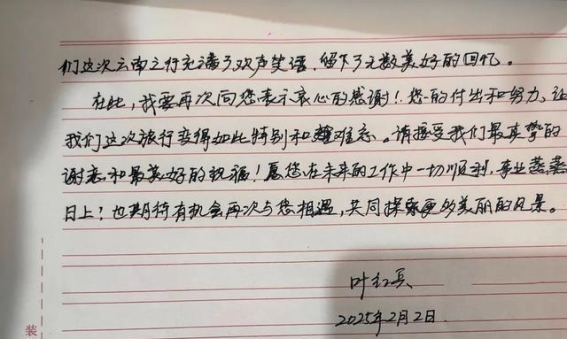 们这次云南之行充满了欢声笑语,留下了无数美好的回忆。
在此,我要再次向您表示衷心的感谢!您的付出和努力,让
我们这次旅行变得如此特别和难忘。请接受我们最真挚的
谢意和最美好的祝福!愿您在未来的工作中一切顺利,事业蒸蒸
日上!也期待有机会再次与您相遇,共同探索更多美丽的风景。
叶
2025年2月2日
装